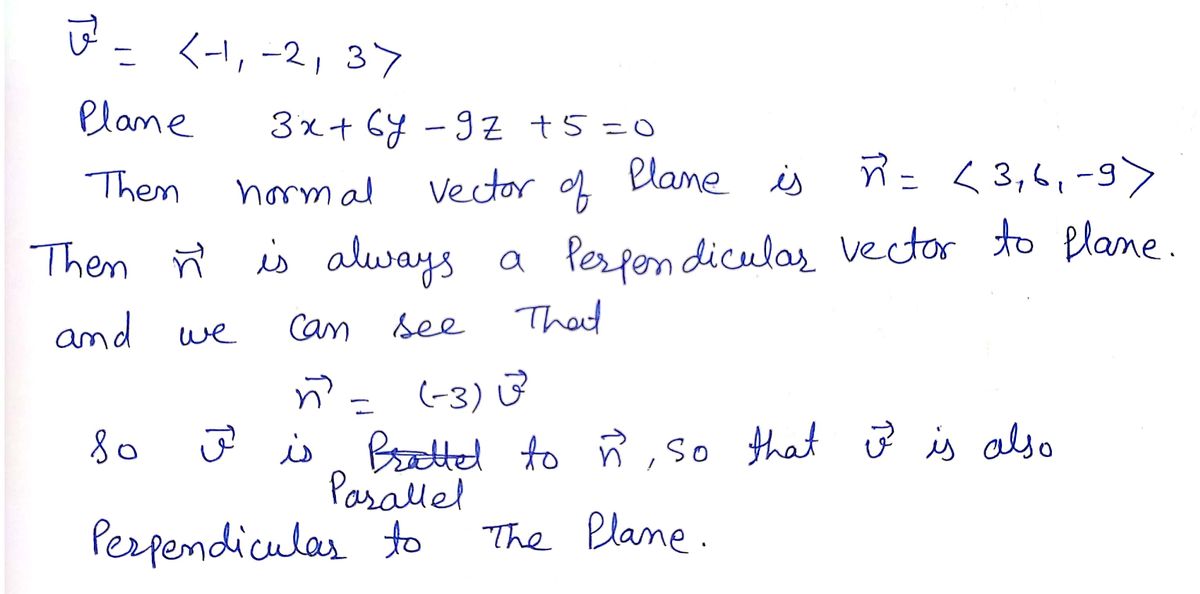 v⃗ = <-1, -2, 3>
Plane 3x + 6y - 9z + 5 = 0
Then normal vector of Plane is n⃗ = <3,6,-9>
Then n⃗ is always a Perpendicular vector to plane.
and we can see That
n⃗ = (-3) v⃗
So v⃗ is to n⃗, so that v⃗ is also
Parallel
Perpendicular to The Plane.